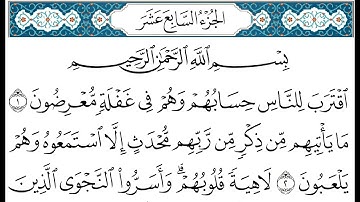 الجزء السابع عشر
بِسْمِ ٱللَّهِ ٱلرَّحْمَٰنِ ٱلرَّحِيمِ
ٱقْتَرَبَ لِلنَّاسِ حِسَابُهُمْ وَهُمْ فِى غَفْلَةٍ مُّعْرِضُونَ ١
مَا يَأْتِيهِم مِّن ذِكْرٍ مِّن رَّبِّهِم مُّحْدَثٍ إِلَّا ٱسْتَمَعُوهُ وَهُمْ
يَلْعَبُونَ ٢ لَاهِيَةً قُلُوبُهُمْ ۗ وَأَسَرُّوا۟ ٱلنَّجْوَى ٱلَّذِينَ